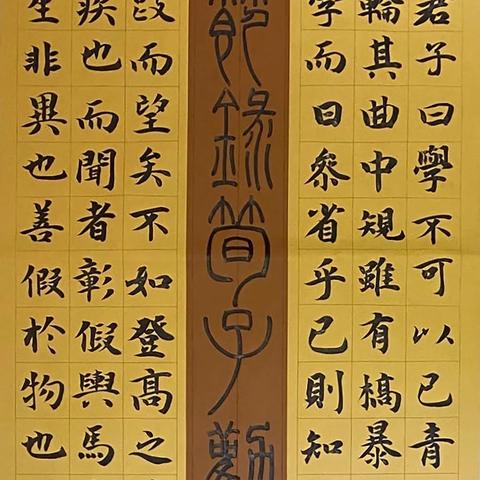 君子曰學不可以已青
輪其曲中規雖有槁暴
學而日參省乎己則知
節錄荀子勸
跂而望矣不如登高之
疾也而聞者彰假輿馬
生非異也善假於物也